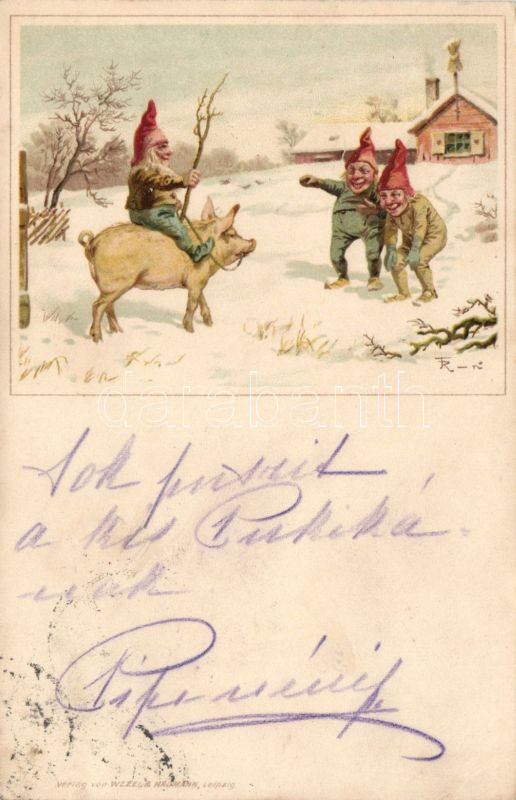 darabanth
Sok puszit
a kis Pukiká-
nak
Pipi nénik
Verlag von WEZEL & NAUMANN, Leipzig.